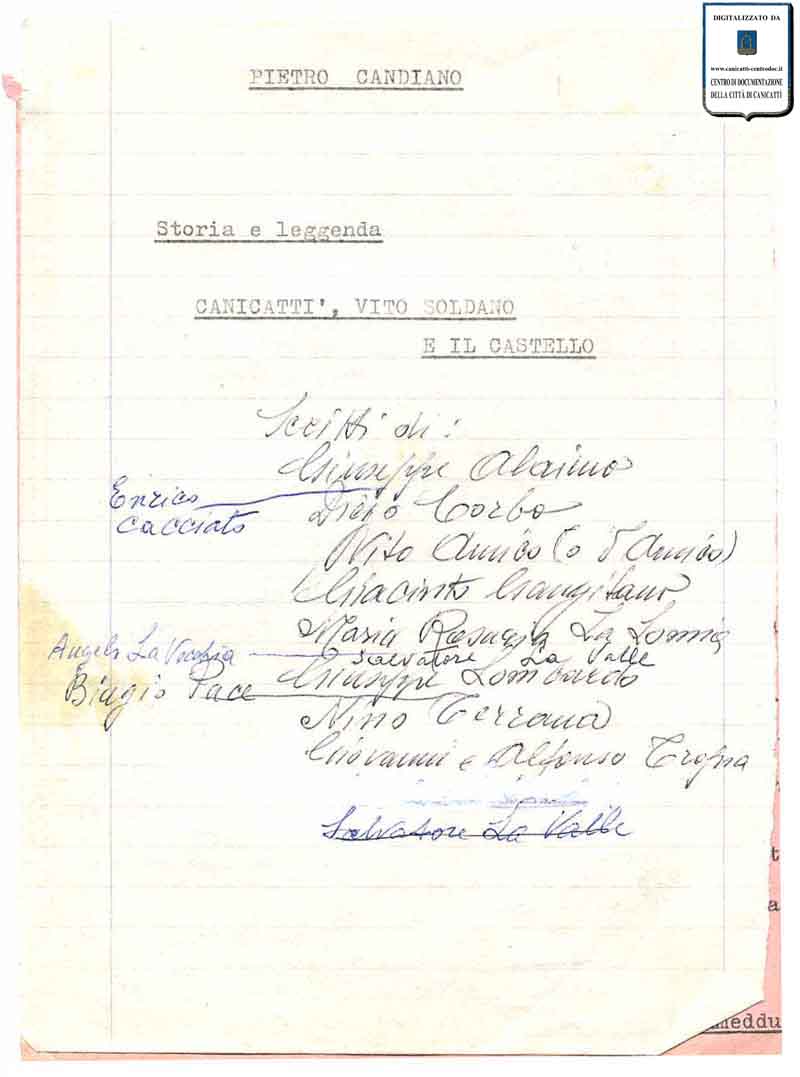 DIGITALIZZATO DA
www.canicatti-centrodoc.it
CENTRO DI DOCUMENTAZIONE
DELLA CITTÀ DI CANICATTÌ
PIETRO CANDIANO
Storia e leggenda
CANICATTI', VITO SOLDANO
E IL CASTELLO
Scritti di:
Giuseppe Alaimo
Enrico Cacciato
Diego Corbo
Vito Amico (o D'Amico)
Giacinto Gangitano
Maria Rosaria La Lomia
Angelo La Vecchia
Salvatore La Valle
Biagio Pace
Giuseppe Lombardo
Nino Terrana
Giovanni e Alfonso Tropia
Salvatore La Valle
t
a
meddu